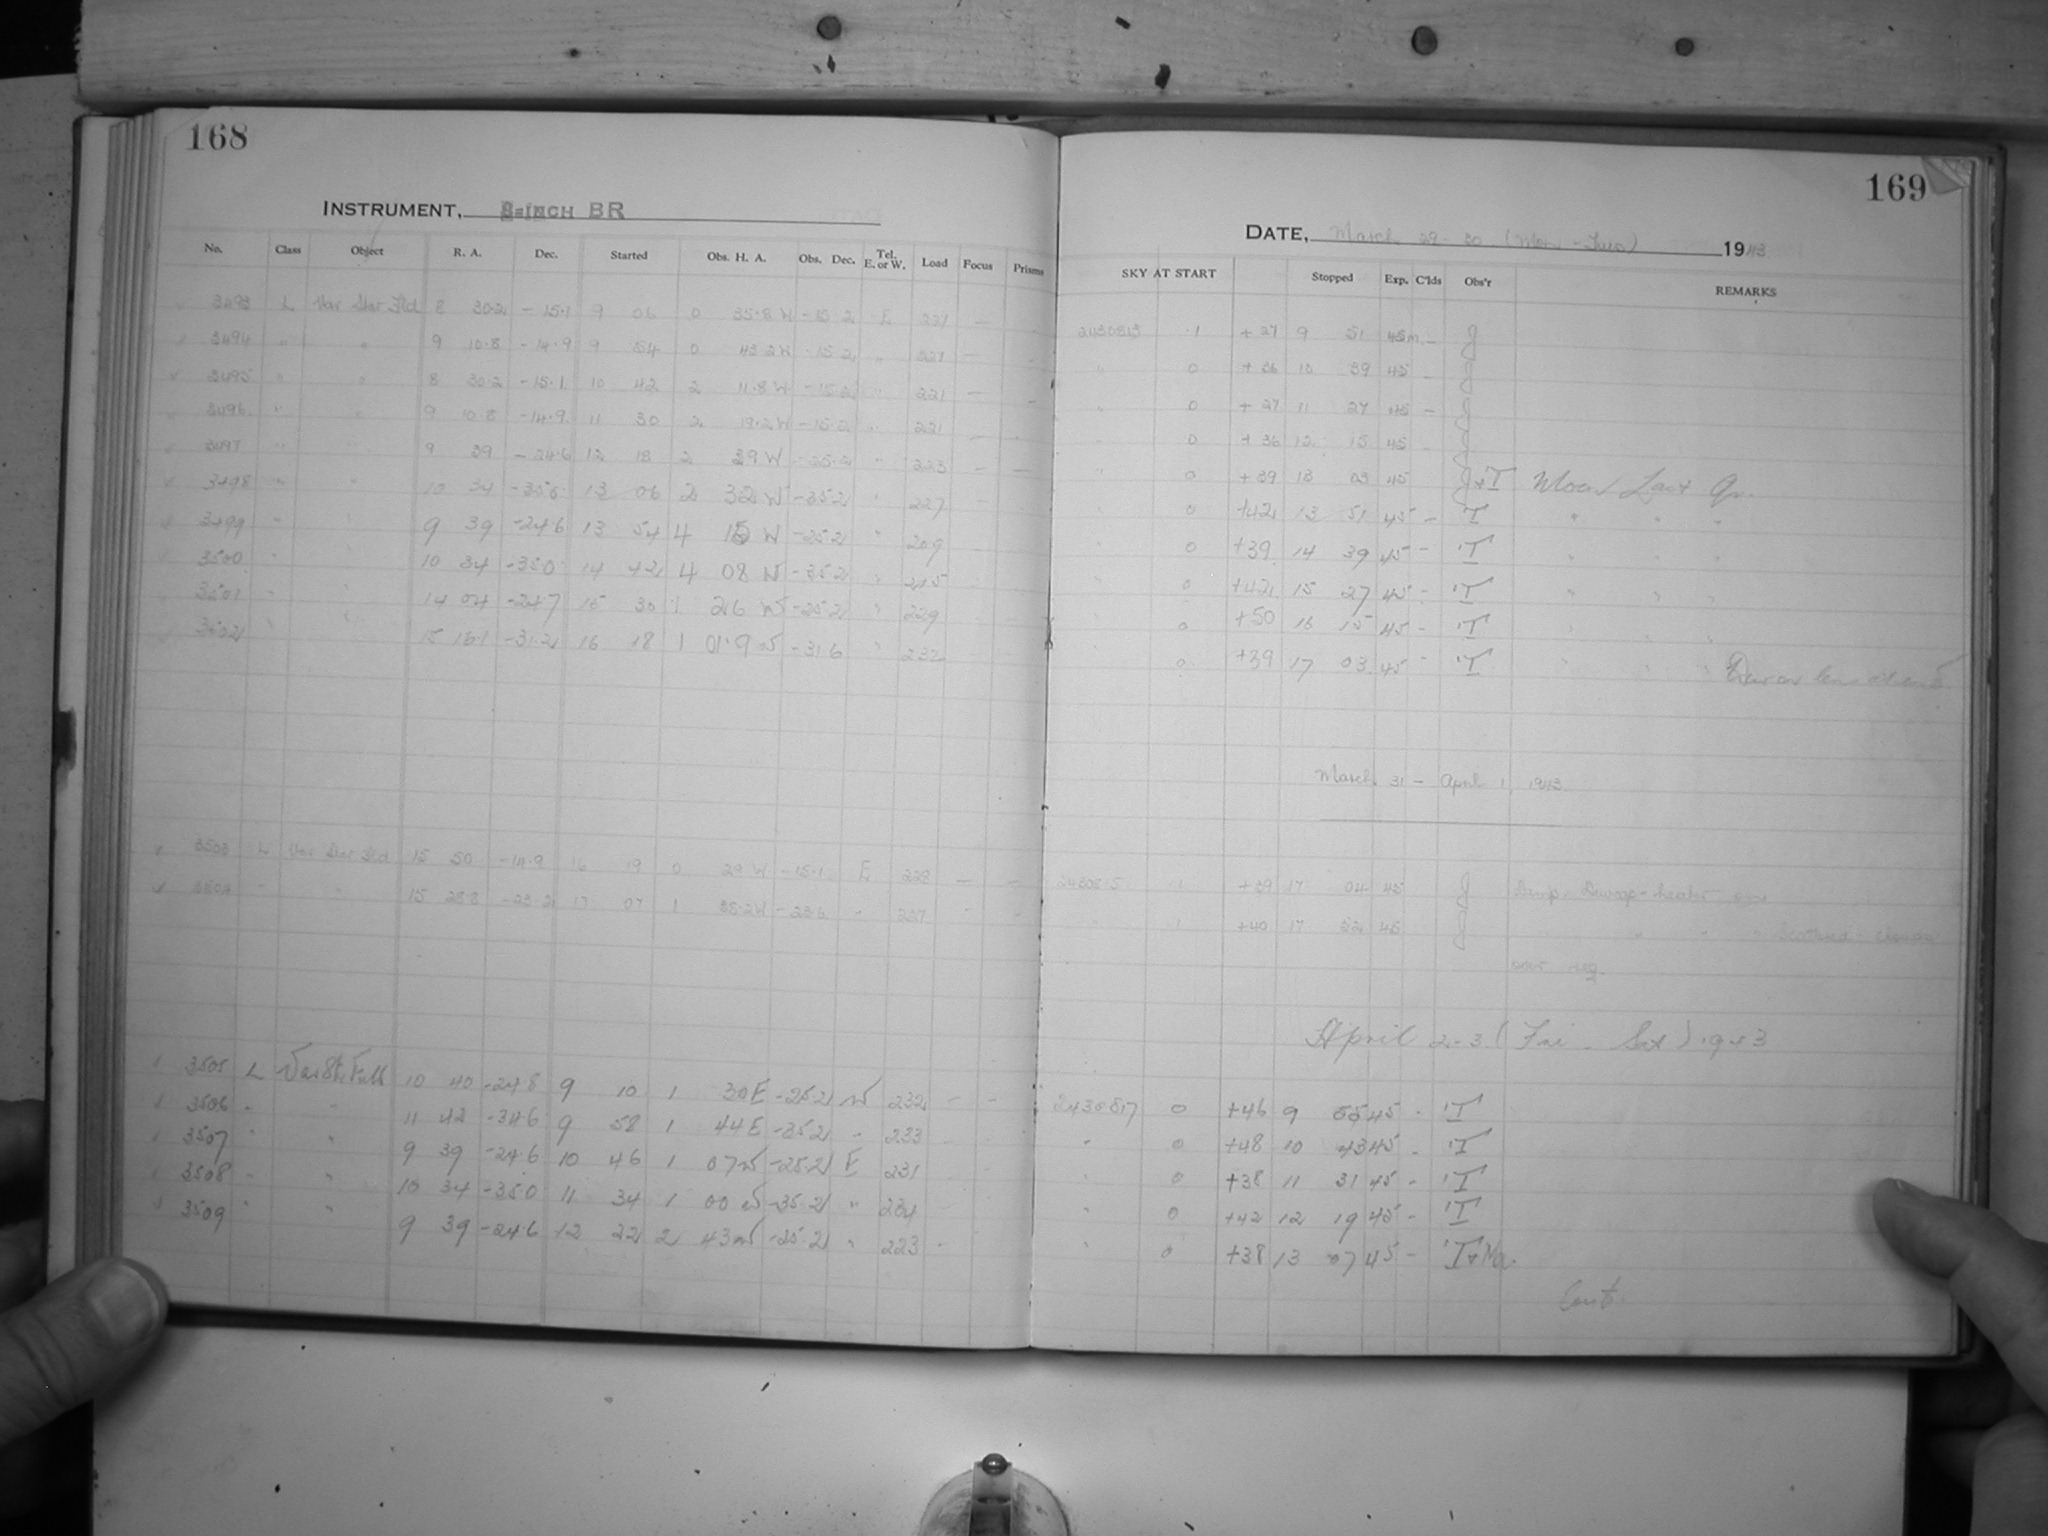 168
INSTRUMENT, 8-INCH BR
No. Class Object R. A. Dec. Started Obs. H. A. Obs. Dec. Tel. E. or W. Load Focus Prisms
3493 L Var Star Fld 8 30.2 -15.1 9 06 0 35.8 W -15.2 E 221 —
3494 " " 9 10.8 -14.9 9 54 0 43.2 W -15.2 " 221 —
3495 " " 8 30.2 -15.1 10 42 2 11.8 W -15.2 " 221 —
3496 " " 9 10.8 -14.9 11 30 2 19.2 W -15.2 " 221
3497 " " 9 39 -24.6 12 18 2 39 W -25.2 " 223 — —
3498 " " 10 34 -35.0 13 06 2 32 W -35.2 " 227
3499 " " 9 39 -24.6 13 54 4 15 W -25.2 " 209
3500 " " 10 34 -35.0 14 42 4 08 W -35.2 " 215
3501 " " 14 04 -24.7 15 30 1 26 W -25.2 " 229
3502 " " 15 16.1 -31.2 16 18 1 01.9 W -31.6 " 232
3503 L Var Star Fld 15 50 -14.9 16 19 0 29 W -15.1 E 228 — —
3504 " " 15 28.8 -23.2 17 07 1 35.2 W -23.6 " 237
3505 L Var St. Field 10 40 -24.8 9 10 1 30 E -25.2 W 232 — —
3506 " " 11 42 -34.6 9 58 1 44 E -35.2 " 233
3507 " " 9 39 -24.6 10 46 1 07 W -25.2 E 231
3508 " " 10 34 -35.0 11 34 1 00 W -35.2 " 234
3509 " " 9 39 -24.6 12 22 2 43 W -25.2 " 223
169
DATE, March 29-30 (Mon - Tues) 1943
SKY AT START Stopped Exp. C'lds Obs'r REMARKS
2430813 1 +27 9 51 45m — J
" 0 +36 10 39 45 — J
" 0 +27 11 27 45 — J
" 0 +36 12 15 45 J
" 0 +39 13 03 45 J+T Moon Last Qr.
" 0 +42 13 51 45 — T " " "
" 0 +39 14 39 45 — T " " "
" 0 +42 15 27 45 — T " " "
" 0 +50 16 15 45 — T " " "
" 0 +39 17 03 45 — T " " " Dew on lens at end
March 31 - April 1, 1943
1 +39 17 04 45 J Damp - Dewcap-heater on
" 1 +40 17 52 45 J " " " Scattered clouds
over reg.
April 2-3 (Fri - Sat) 1943
2430817 0 +46 9 55 45 - T
" 0 +48 10 43 45 - T
" 0 +38 11 31 45 - T
" 0 +42 12 19 45 - T
" 0 +38 13 07 45 - T+Ma.
Cont.